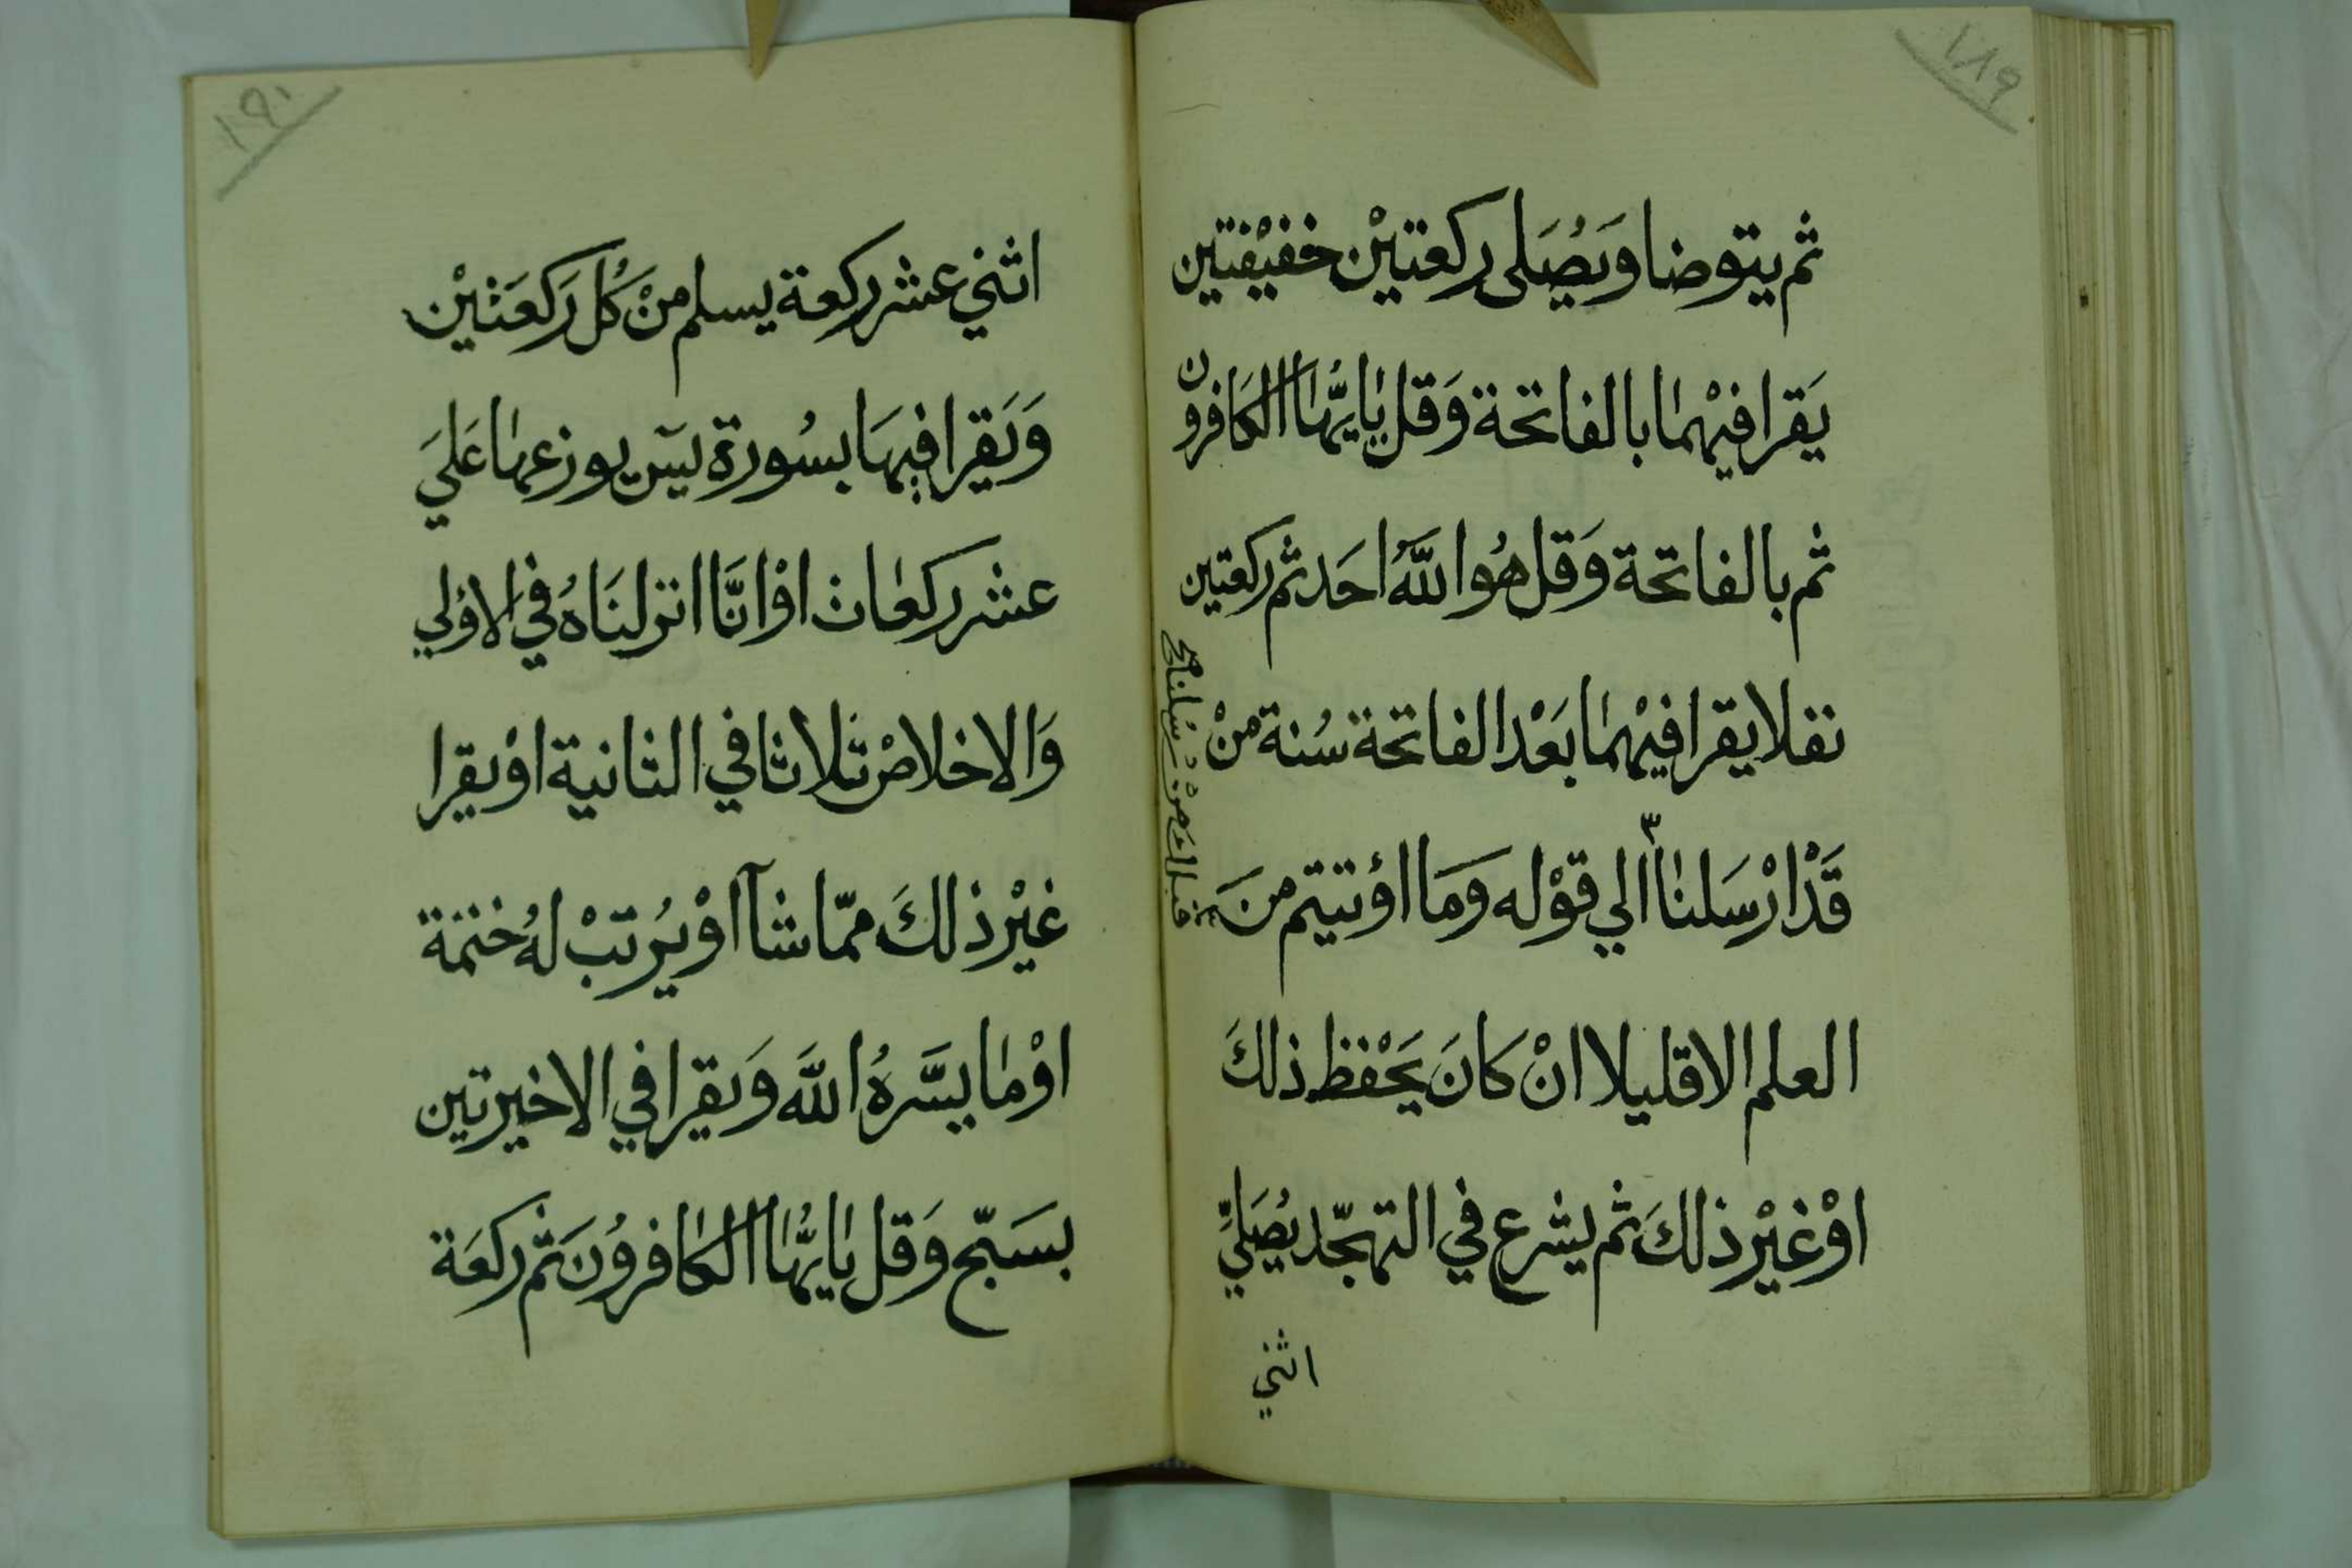 ١٨٩
ثم يتوضا وَيُصَلى ركعتيْن خفيْفتين
يَقرا فيْهمَا بالفاتحة وَقل يٰايهَّا الكَافرون
ثم بالفاتحة وَقل هُو اللَّهُ احَد ثم ركعتين
نفلا يقرا فيْهمَا بَعْد الفاتحة سُنة منْ
قَدْ ارْسَلنا الي قوْله وَمَا اوْتيتم منَ
العلم الا قليلا انْ كانَ يَحْفظ ذلكَ
اوْ غيْر ذلكَ ثم يشرع في التهجّد يُصَلّي
اثني
قبلك منْ رسُلنا صح
١٩٠
اثني عشر ركعة يسلم منْ كُل رَكعَتيْن
وَيَقرا فيهَا بسُورة يسٓ يوزعهَا عَليَ
عشر ركعات اوْ انَّا انزلنَاهُ في الاوْلي
وَالاخلاصْ ثلاثا في الثانية اوْ يقرا
غيْر ذلكَ ممّا شآ اوْ يُرتبْ لهُ ختمَة
اوْ مَا يسَّرهُ اللَّه وَيقرا في الاخيرتين
بسَبّح وَقل يٰايُّهَا الكافروُنَ ثم ركعَة